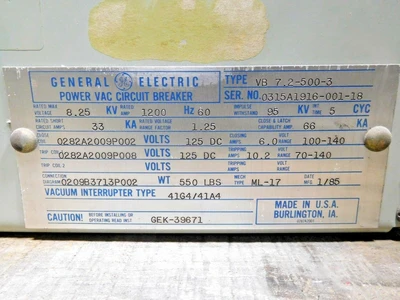 GENERAL GE ELECTRIC TYPE VB 7.2-500-3
POWER VAC CIRCUIT BREAKER SER. NO. 0315A1916-001-18
RATED MAX VOLTAGE 8.25 KV RATED AMP 1200 Hz 60 IMPULSE WITHSTAND 95 KV INT TIME 5 CYC
RATED SHORT CIRCUIT AMPS 33 KA RATED VOLTAGE RANGE FACTOR 1.25 CLOSE & LATCH CAPABILITY AMP 66 KA
CLOSE COIL 0282A2009P002 VOLTS 125 DC CLOSING AMPS 6.0 CLOSING RANGE 100-140
TRIP COIL 0282A2009P008 VOLTS 125 DC TRIPPING AMPS 10.2 TRIPPING RANGE 70-140
TRIP COIL 2 VOLTS TRIPPING AMPS TRIPPING RANGE
CONNECTION DIAGRAM 0209B3713P002 WT 550 LBS MECH TYPE ML-17 DATE MFG 1/85
VACUUM INTERRUPTER TYPE 41G4/41A4
CAUTION! BEFORE INSTALLING OR OPERATING READ INST GEK-39671
MADE IN U.S.A.
BURLINGTON, IA.